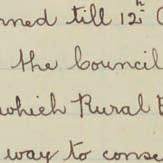 ned till 12th
the Council
which Rural
way to conse